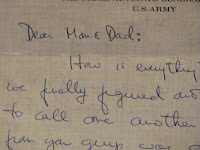 U.S. ARMY
Dear Mom & Dad:
How is everything
we finally figured out
to call one another
from you guys was a